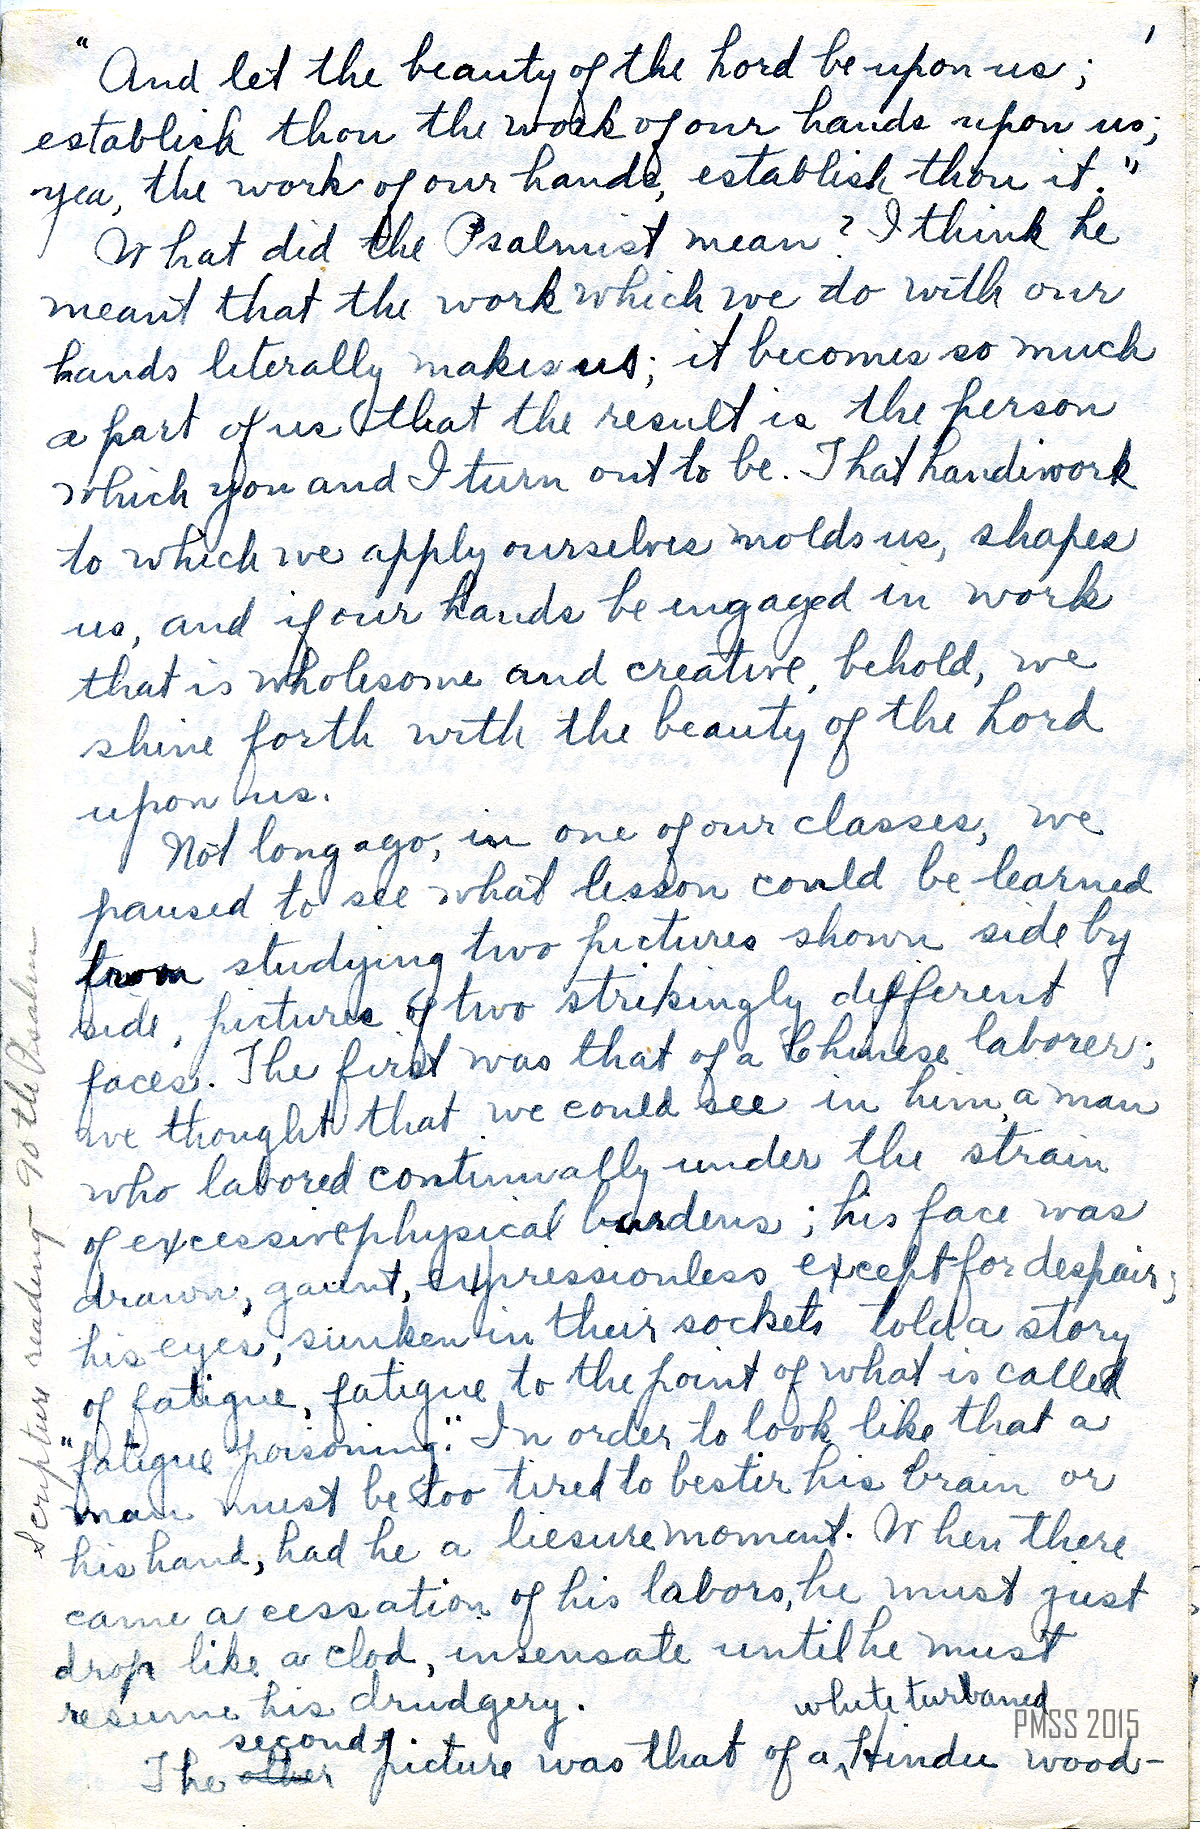 1
"And let the beauty of the Lord be upon us;
establish thou the work of our hands upon us;
yea, the work of our hands, establish thou it."
What did the Psalmist mean? I think he
meant that the work which we do with our
hands literally makes us; it becomes so much
a part of us that the result is the person
which you and I turn out to be. That handiwork
to which we apply ourselves molds us, shapes
us, and if our hands be engaged in work
that is wholesome and creative, behold, we
shine forth with the beauty of the Lord
upon us.
Not long ago, in one of our classes, we
paused to see what lesson could be learned
from studying two pictures shown side by
side, pictures of two strikingly different
faces. The first was that of a Chinese laborer;
we thought that we could see in him, a man
who labored continually under the strain
of excessive physical burdens; his face was
drawn, gaunt, expressionless except for despair;
his eyes, sunken in their sockets told a story
of fatigue, fatigue to the point of what is called
"fatigue poisoning." In order to look like that a
man must be too tired to bestir his brain or
his hand, had he a liesure moment. When there
came a cessation of his labors, he must just
drop like a clod, insensate until he must
resume his drudgery.
The other second picture was that of a white turbaned Hindu wood-
Scripture reading - 90th Psalm
PMSS 2015